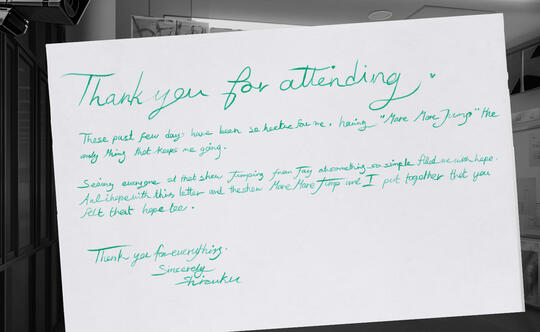 Thank you for attending
These past few days have been so hectic for me. having "More More Jump" the
only thing that keeps me going.
Seeing everyone at that show Jumping from Joy at something so simple filled me with hope.
And i hope with this letter and the show More More Jump and I put together that you
felt that hope too.
Thank you for everything.
Sincerely
Shizuku